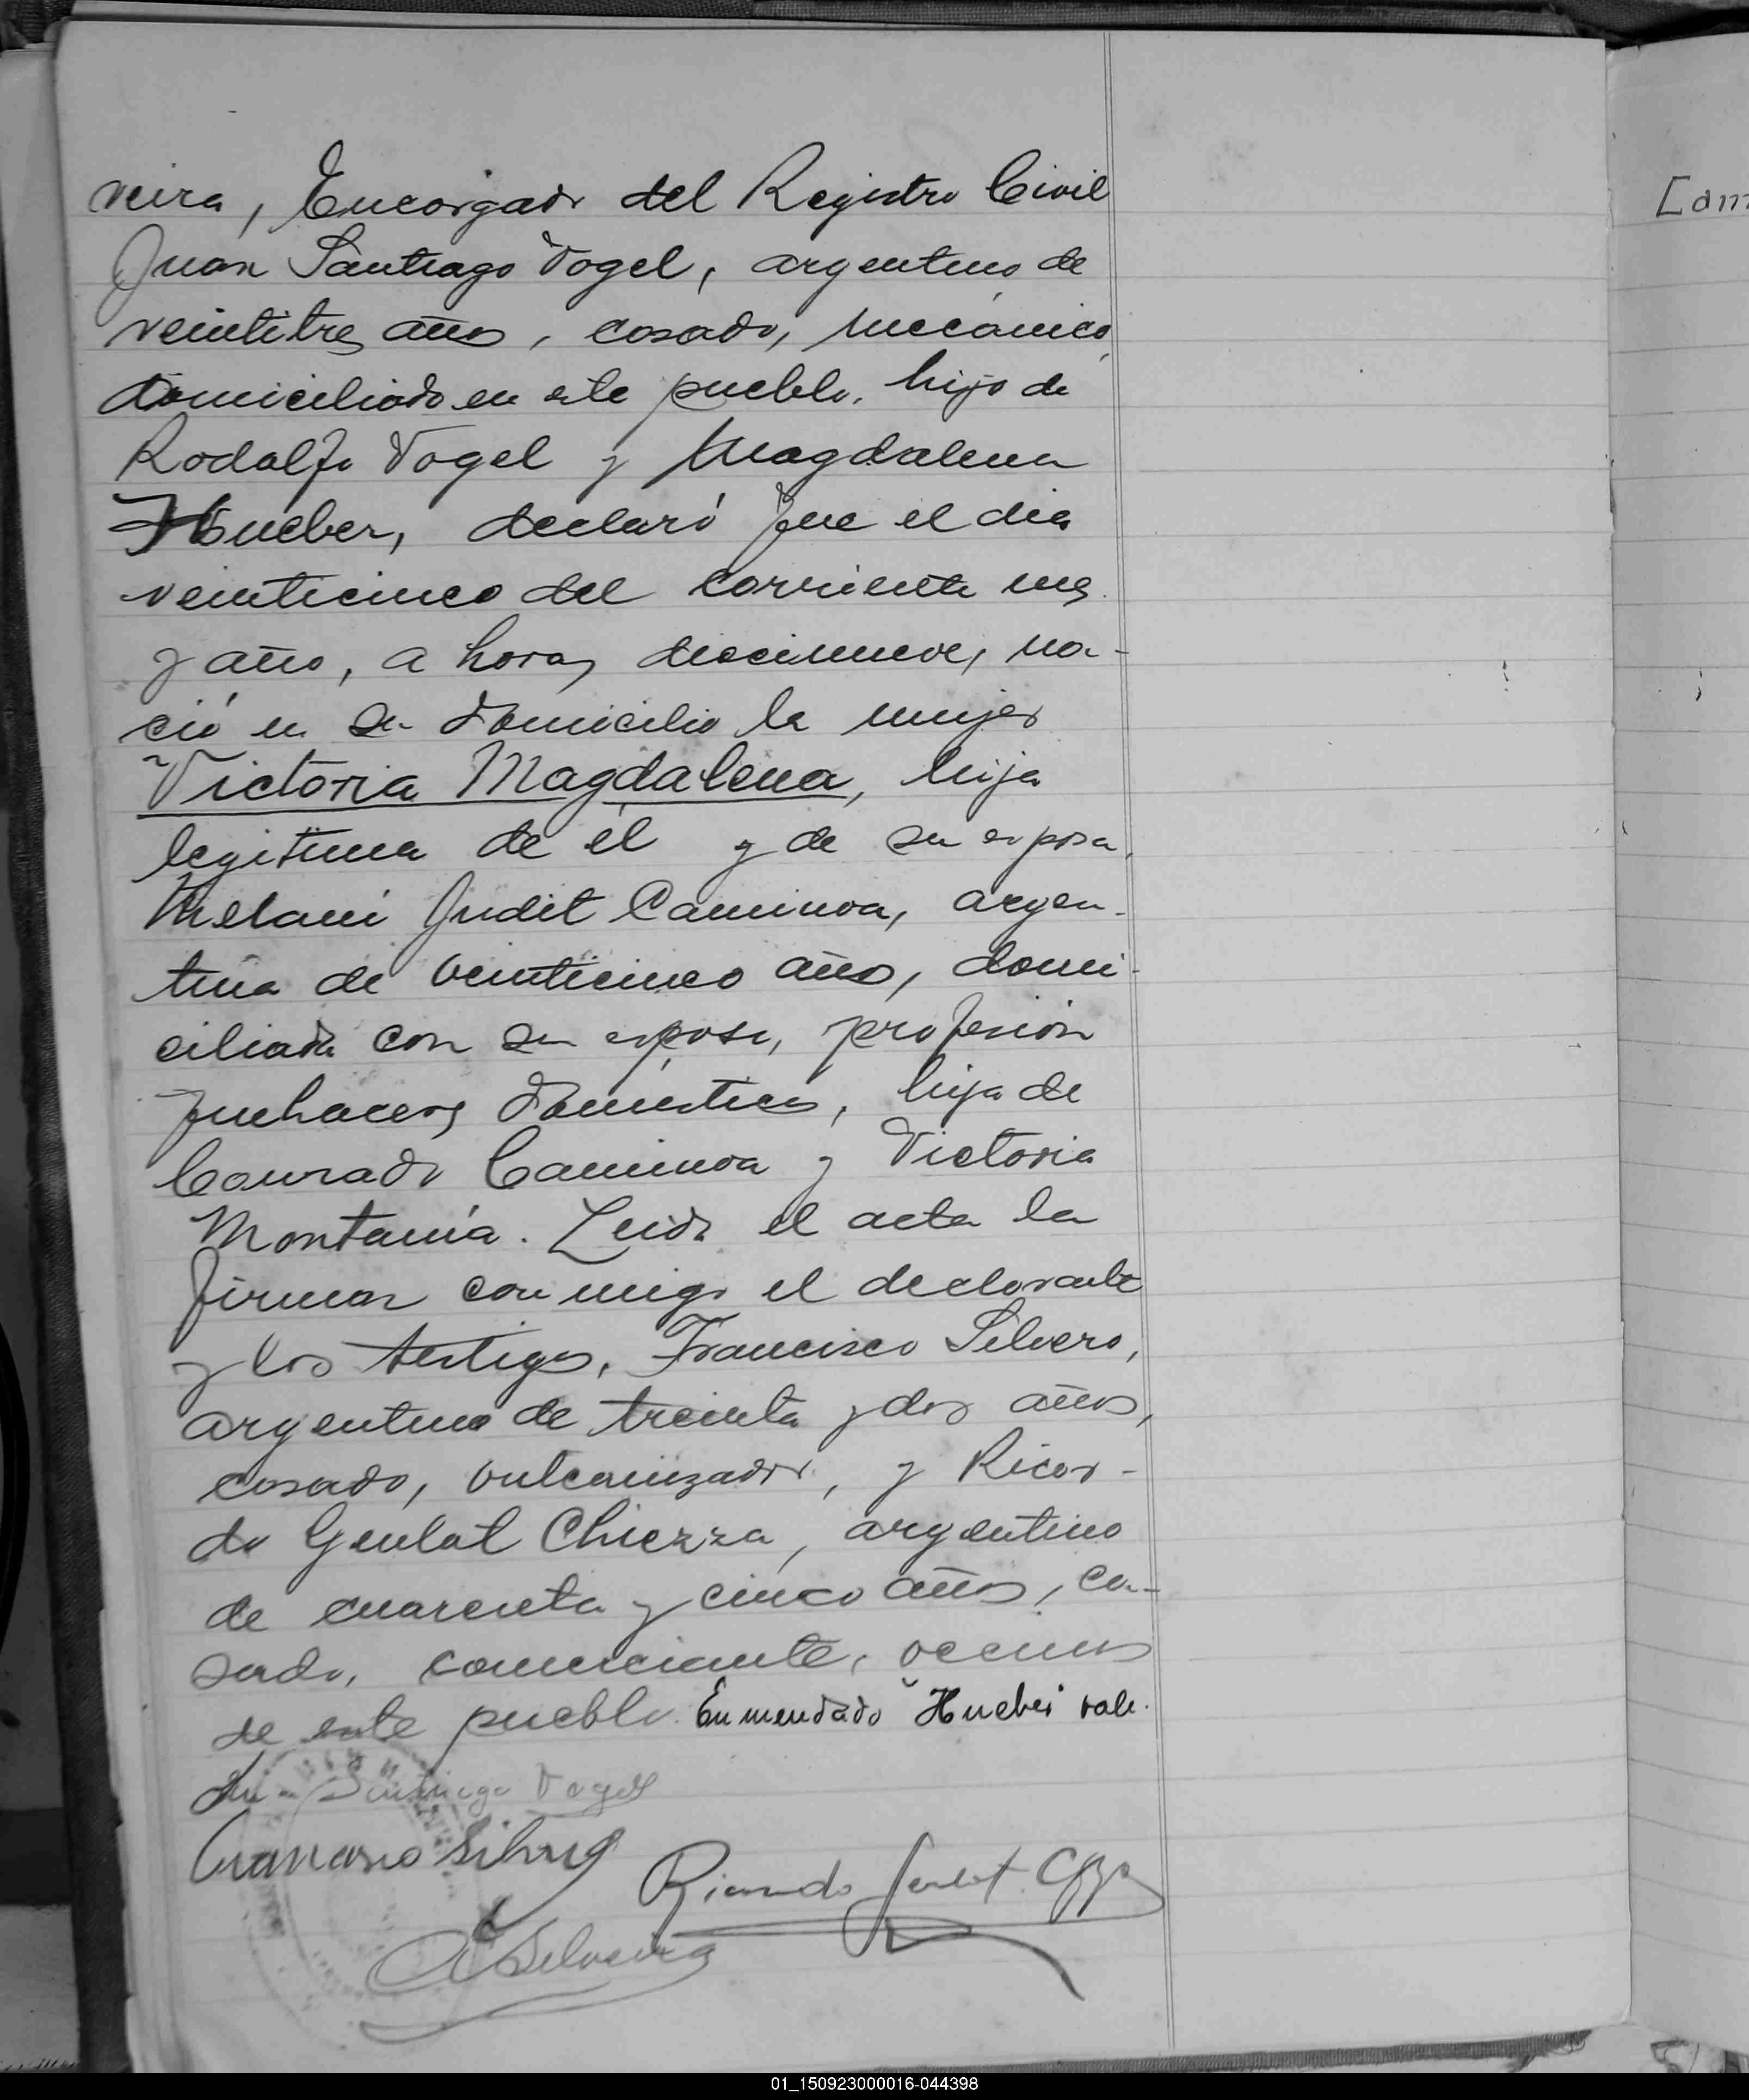 veira, Encargado del Registro Civil
Juan Santiago Vogel, argentino de
veintitres años, casado, mecánico,
domiciliado en este pueblo, hijo de
Rodolfo Vogel y Magdalena
Hueber, declaró que el dia
veinticinco del corriente mes
y año, a horas diecinueve, na-
ció en su domicilio la mujer
Victoria Magdalena, hija
legitima de él y de su esposa,
Melani Judit Caminoa, argen-
tina de veinticinco años, domi-
ciliada con su esposo, profesión
quehaceres domésticos, hija de
Conrado Caminoa y Victoria
Montanía. Leida el acta la
firman conmigo el declarante
y los testigos, Francisco Silvero,
argentino de treinta y dos años,
casado, vulcanizador, y Ricar-
do Gentol Chiezza, argentino
de cuarenta y cinco años, ca-
sado, comerciante, vecinos
de este pueblo. Enmendado "Hueber" vale.
Juan Santiago Vogel
Silvero
Ricardo
Silveira
[am
01_150923000016-044398